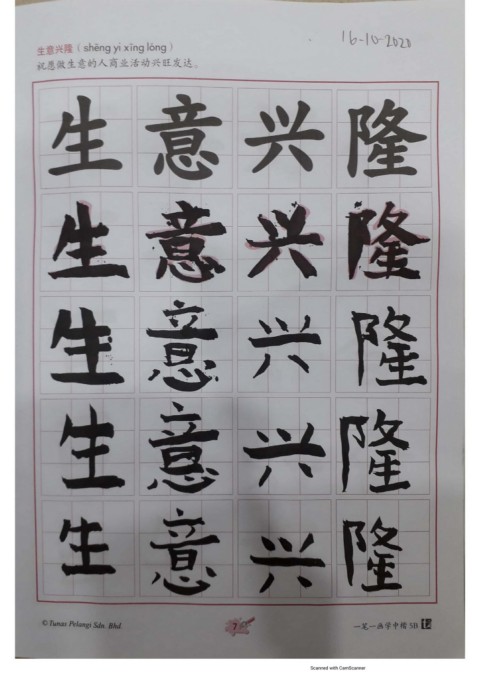 生意兴隆 (shēng yì xīng lóng)
16-10-2020
祝愿做生意的人商业活动兴旺发达。
生意兴隆
生意兴隆
生意兴隆
生意兴隆
生意兴隆
© Tunas Pelangi Sdn. Bhd.
7
一笔一画学中楷 5B
Scanned with CamScanner